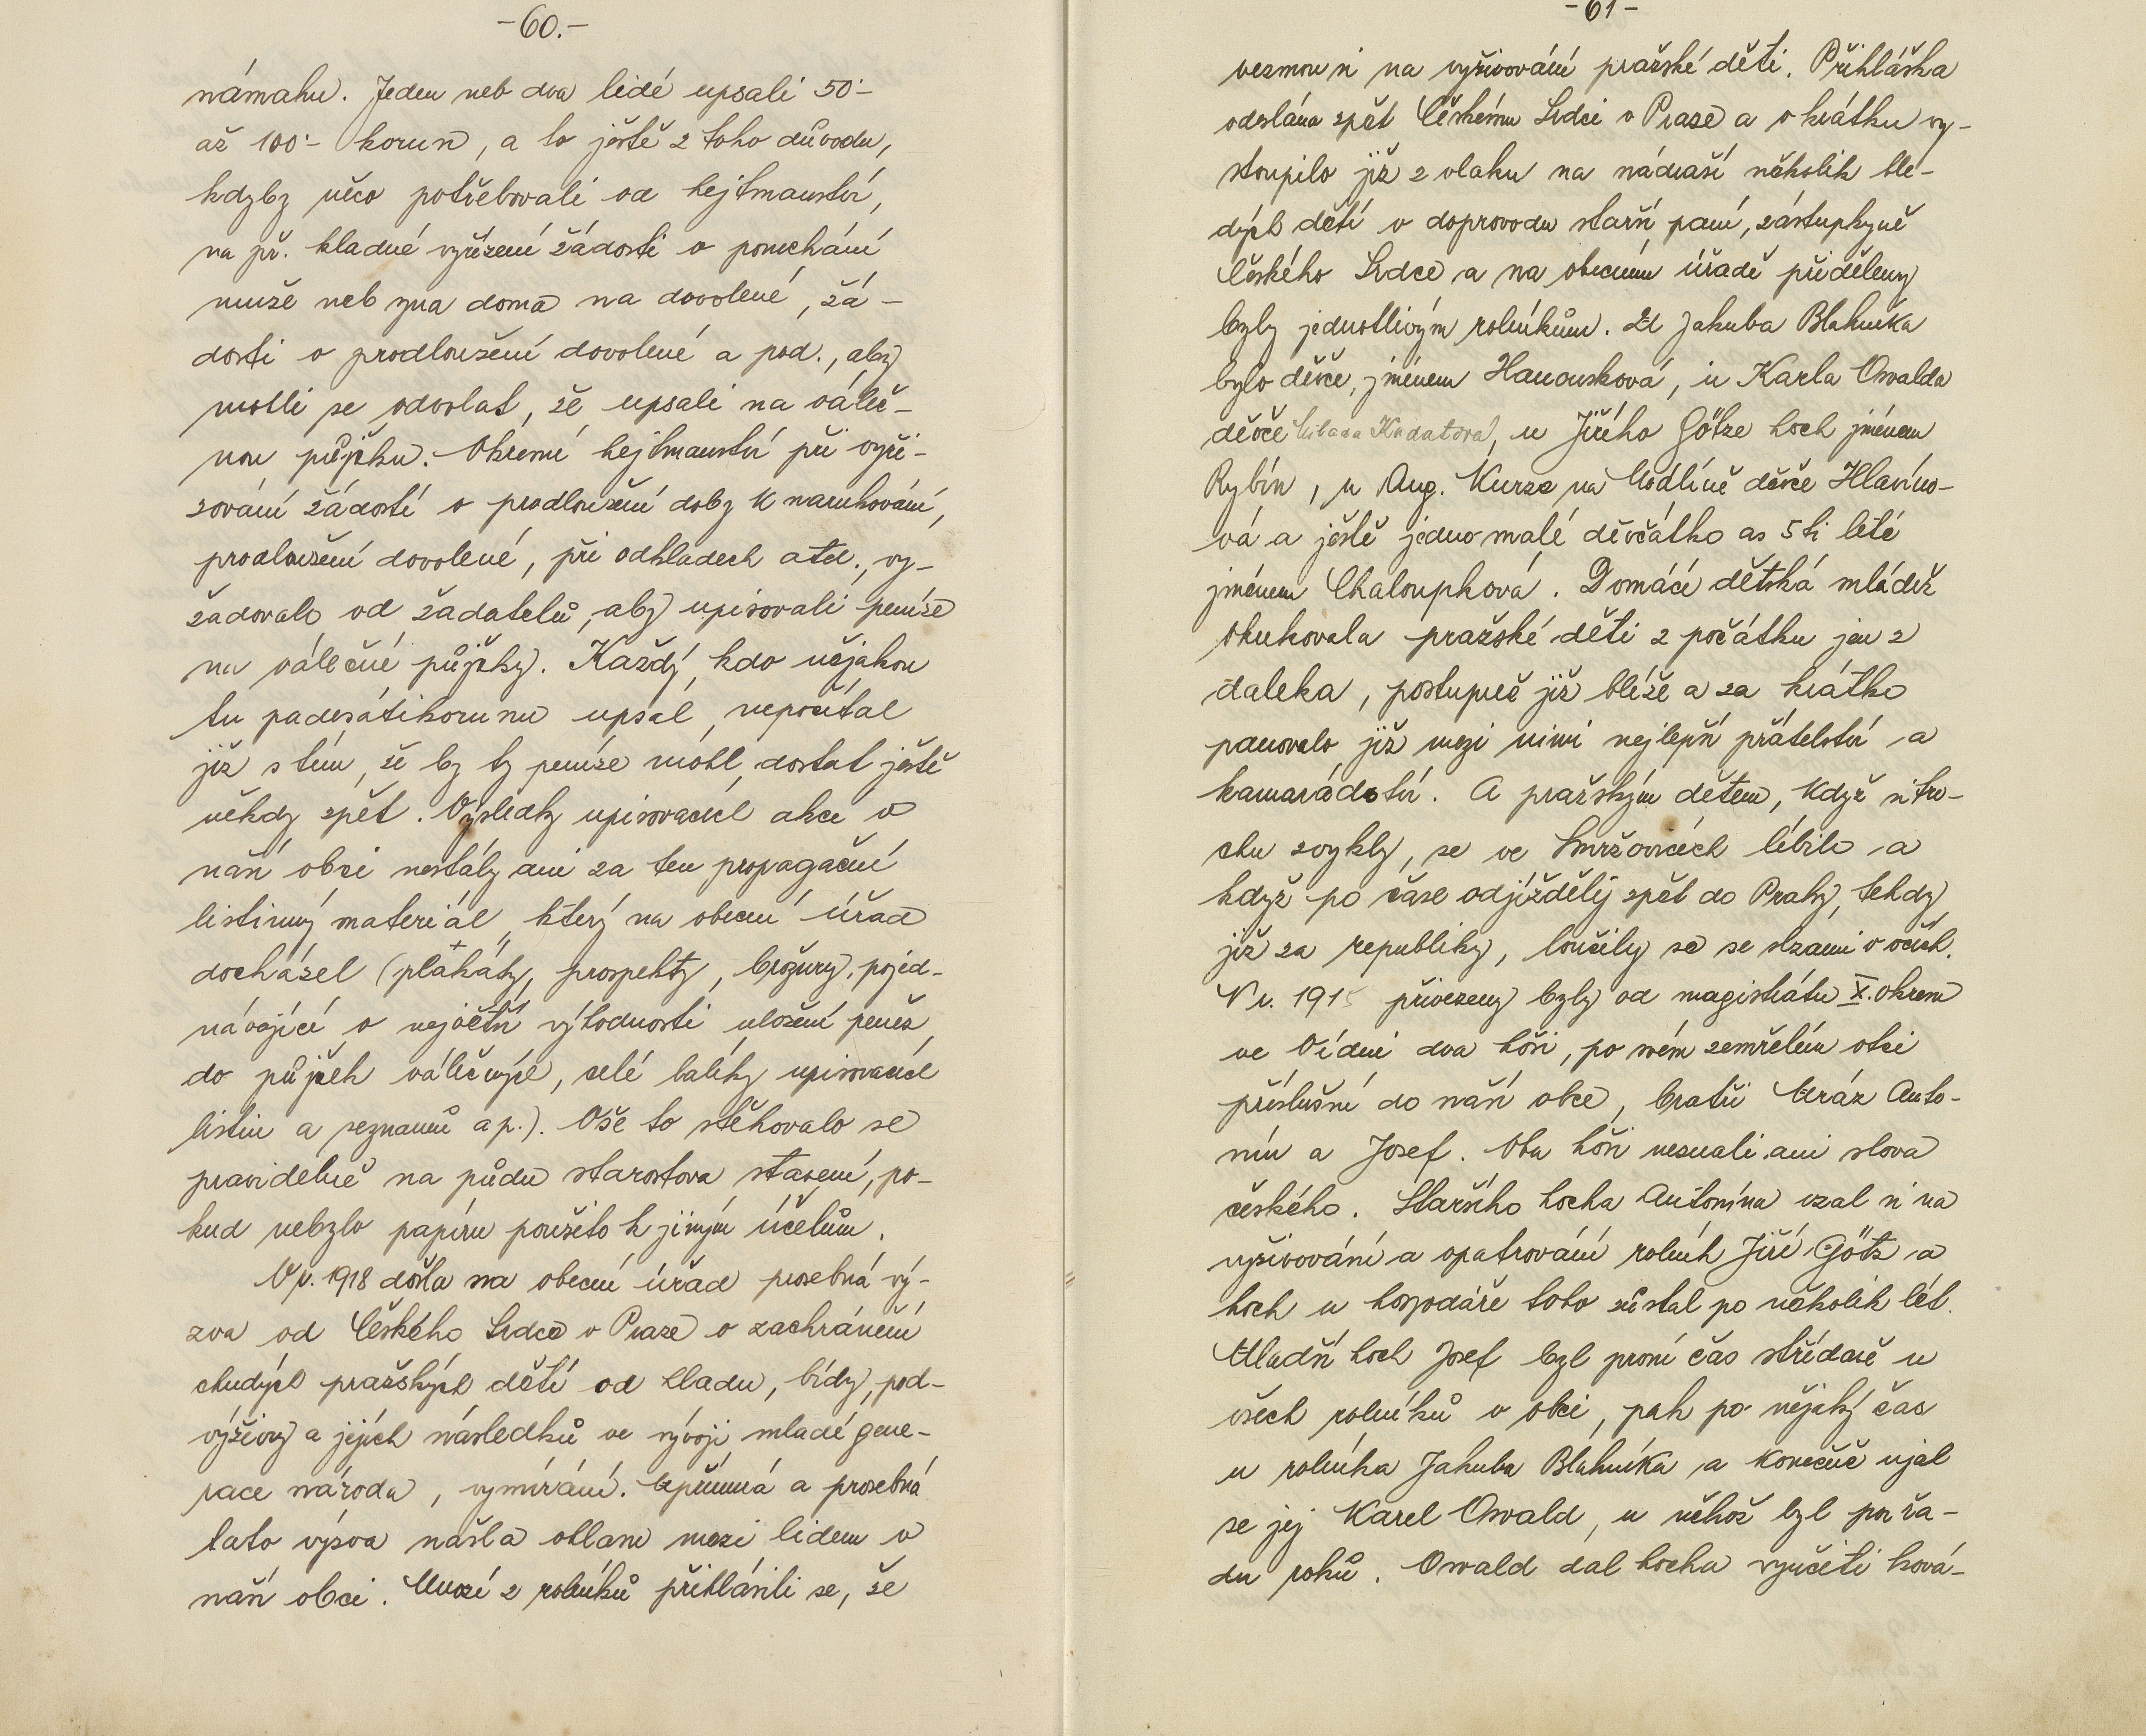 -60.-
námahu. Jeden neb dva lidé upsali 50·-
až 100·- korun, a to ještě z toho důvodu,
kdyby něco potřebovali od hejtmanství,
na př. kladné vyřízení žádosti o ponechání
muže neb syna doma na dovolené, žá-
dosti o prodloužení dovolené a pod., aby
mohli se odvolat, že upsali na váleč-
nou půjčku. Okresní hejtmanství při vyři-
zování žádostí o prodloužení doby k narukování,
prodloužení dovolené, při odkladech atd., vy-
žadovalo od žadatelů, aby upisovali peníze
na válečné půjčky. Každý, kdo nějakou
tu padesátikorunu upsal, nepočítal
již s tím, že by ty peníze mohl dostat ještě
někdy zpět. Výsledky upisovacích akcí v
naší obci nestály ani za ten propagační
listinný materiál, který na obecní úřad
docházel (plakáty, prospekty, brožury, pojed-
návající o největší výhodnosti uložení peněz
do půjček válečných, celé balíky upisovacích
listin a seznamů a p.). Vše to stěhovalo se
pravidelně na půdu starostova stavení, po-
kud nebylo papíru použito k jiným účelům.
V r. 1918 došla na obecní úřad prosebná vý-
zva od Českého Srdce v Praze o zachránění
chudých pražských dětí od hladu, bídy, pod-
výživy a jejích následků ve vývoji mladé gene-
race národa, vymírání. Upřímná a prosebná
tato výzva našla ohlasu mezi lidem v
naší obci. Mnozí z rolníků přihlásili se, že
-61-
vezmou si na vyživování pražské děti. Přihláška
odeslána zpět Českému Srdci v Praze a v krátku vy-
stoupilo již z vlaku na nádraží několik ble-
dých dětí v doprovodu starší paní, zástupkyně
Českého Srdce a na obecním úřadě přiděleny
byly jednotlivým rolníkům. U Jakuba Blahníka
bylo děvče, jménem Hanousková, u Karla Oswalda
děvče Kudatova, u Jiřího Götze hoch jménem
Rybín, u Aug. Kurze na Vodlíně děvče Hlavino-
vá a ještě jedno malé děvčátko as 5ti leté
jménem Chaloupková. Domácí dětská mládež
okukovala pražské děti z počátku jen z
daleka, postupně již blíže a za krátko
panovalo již mezi nimi nejlepší přátelství a
kamarádství. A pražským dětem, když si tro-
chu zvykly, se ve Smržovicích líbilo a
když po čase odjížděly zpět do Prahy, tehdy
již za republiky, loučily se se slzami v očích.
V r. 191 přivezeny byly od magistrátu X. okresu
ve Vídni dva hoši, po svém zemřelém otci
příslušní do naší obce, bratři Mráz Anto-
nín a Josef. Oba hoši neznali ani slova
českého. Staršího hocha Antonína vzal si na
vyživování a opatrování rolník Jiří Götz a
hoch u hospodáře toho zůstal po několik lét.
Mladší hoch Josef byl první čas střídavě u
všech rolníků v obci, pak po nějaký čas
u rolníka Jakuba Blahníka a konečně ujal
se jej Karel Oswald, u něhož byl po řa-
du roků. Oswald dal hocha vyučiti ková-